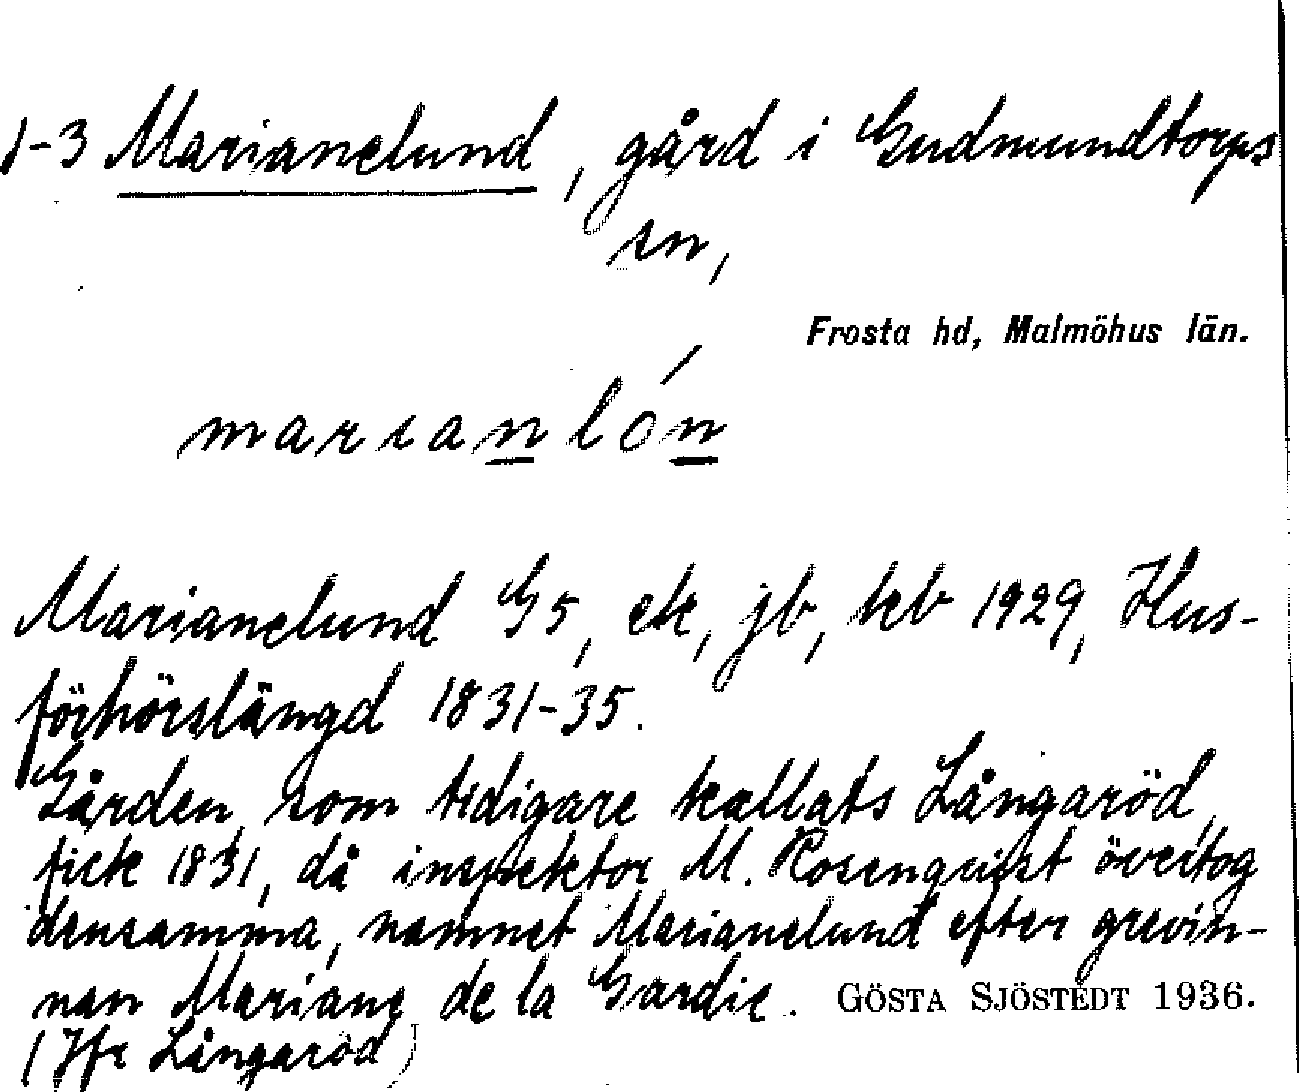 1-3 Marianelund, gård i Gudmundtorps
sn,
Frosta hd, Malmöhus län.
marıanlón
Marianelund G5, ek, jb, kb 1929, Hus-
förhörslängd 1831-35.
Gården, som tidigare kallats Långaröd,
fick 1831, då inspektor M. Rosenquist övertog
densamma, namnet Marianelund efter grevin-
nan Mariane de la Gardie. GÖSTA SJÖSTEDT 1936.
(Jfr Långaröd)